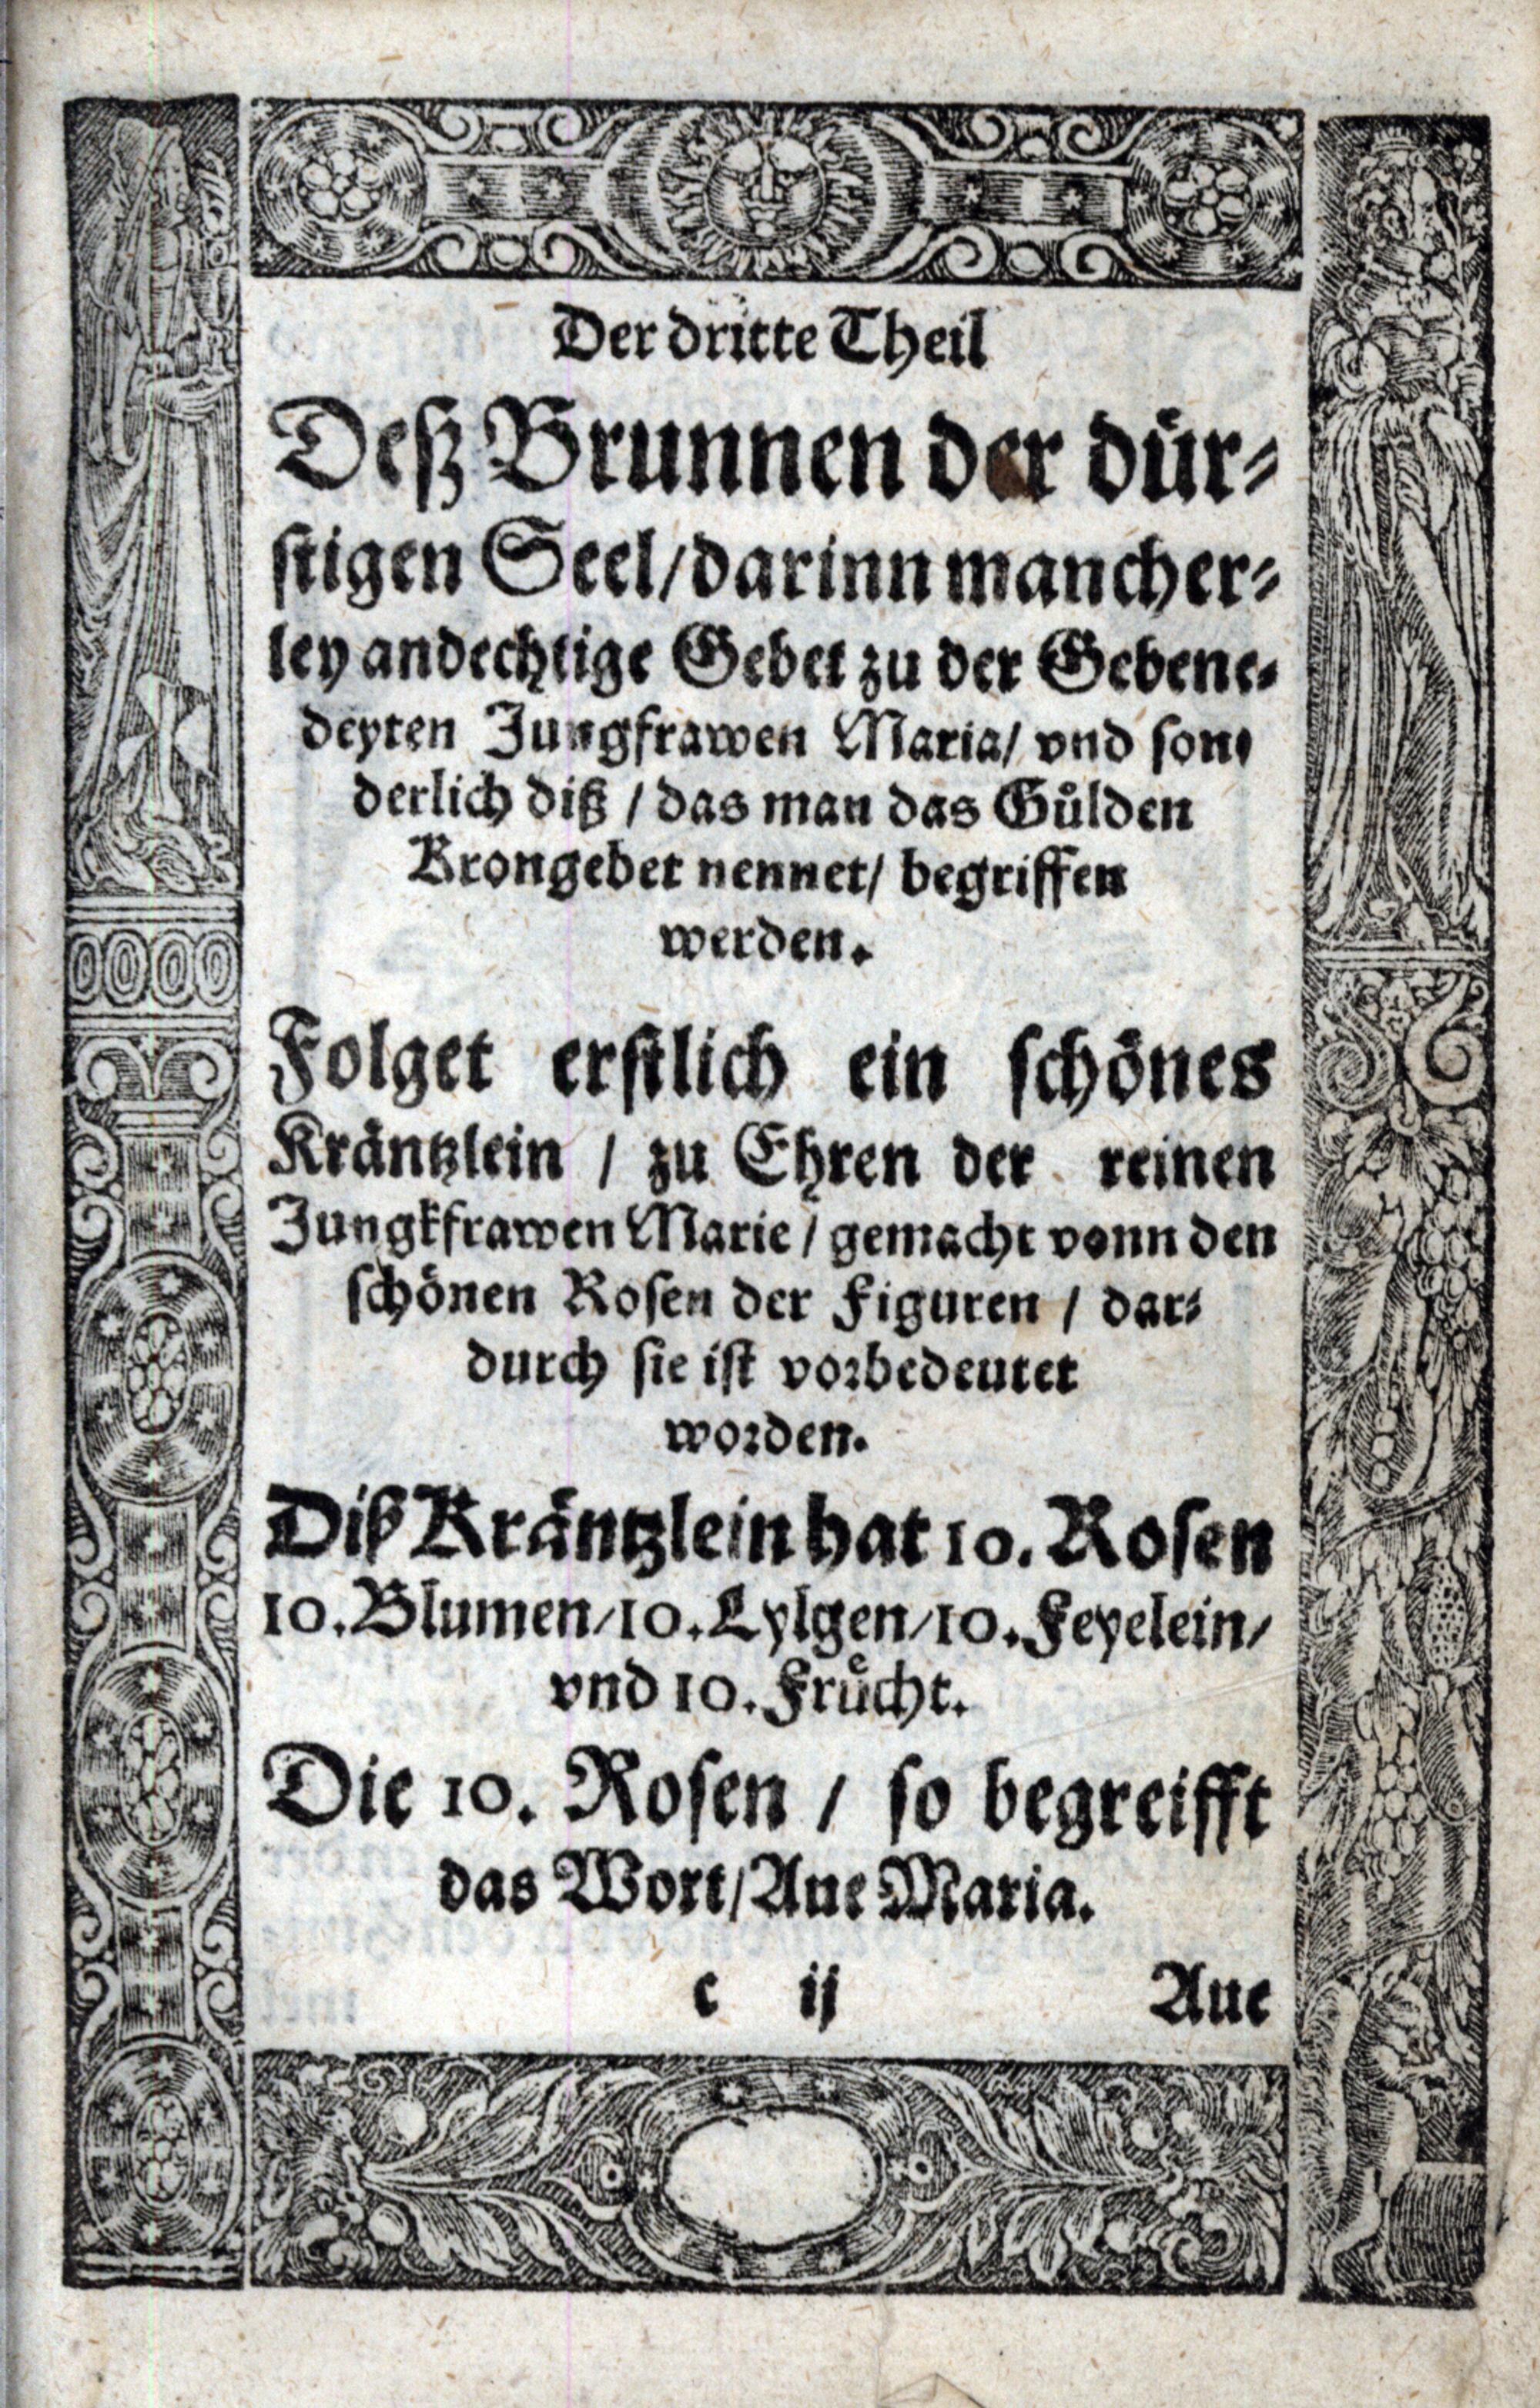 Der dritte Theil
Deß Brunnen der dür-
stigen Seel/darinn mancher-
ley andechtige Gebet zu der Gebene-
deyten Jungfrawen Maria/ vnd son-
derlich diß / das man das Gůlden
Krongebet nennet/ begriffen
werden.
Folget erstlich ein schönes
Kräntzlein / zu Ehren der reinen
Jungkfrawen Marie / gemacht vonn den
schönen Rosen der Figuren / dar-
durch sie ist vorbedeutet
worden.
Diß Kräntzlein hat 10. Rosen
10. Blumen/10. Lylgen/10. Feyelein/
vnd 10. Frůcht.
Die 10. Rosen / so begreifft
das Wort/Aue Maria.
c ij Aue